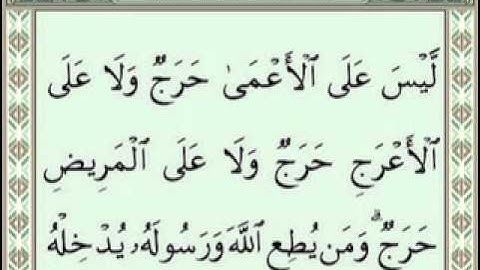 لَّيْسَ عَلَى ٱلْأَعْمَىٰ حَرَجٌ وَلَا عَلَى
ٱلْأَعْرَجِ حَرَجٌ وَلَا عَلَى ٱلْمَرِيضِ
حَرَجٌ ۗ وَمَن يُطِعِ ٱللَّهَ وَرَسُولَهُۥ يُدْخِلْهُ